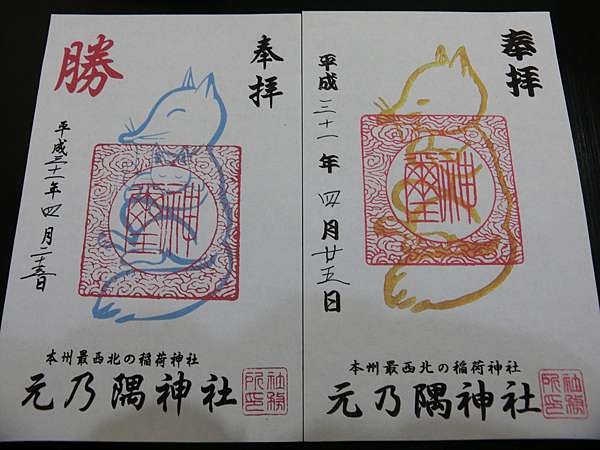 勝
奉拝
平成三十一年四月二十五日
神璽
本州最西北の稲荷神社
元乃隅神社
社務所印
奉拝
平成三十一年四月廿五日
神璽
本州最西北の稲荷神社
元乃隅神社
社務所印